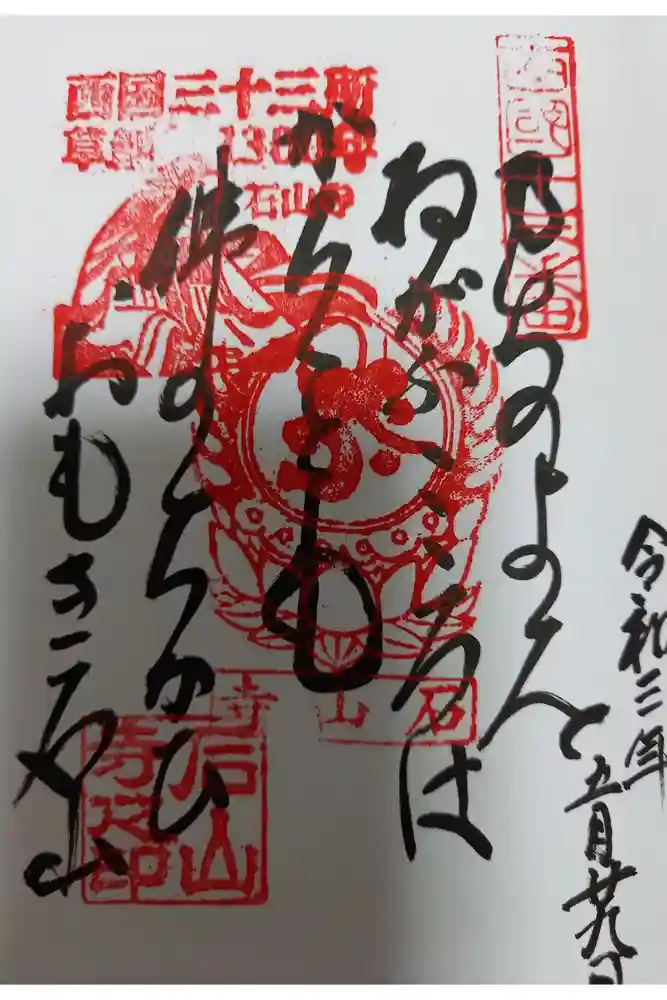 西国十三番
西国三十三所
草創1300年
石山寺
のちのよを
ねがふこゝろは
かろくとも
佛のちかひ
おもきいし山
石山寺
令和三年
五月廿九日